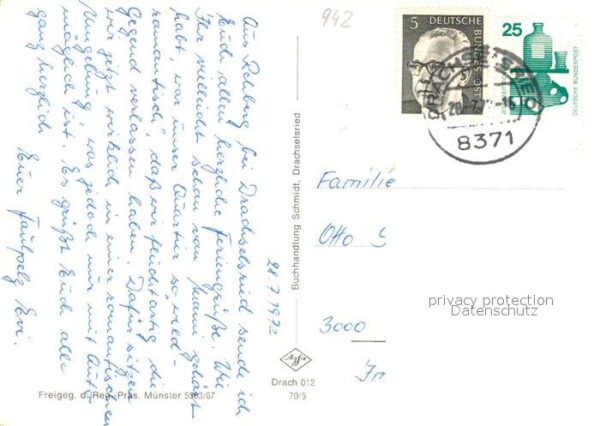 942
5
DEUTSCHE
BUNDESPOST
25
DEUTSCHE BUNDESPOST
DRACHSELSRIED
8371
28.7.1972
Aus Rehberg bei Drachselsried sende ich
Euch allen herzliche Feriengrüße. Wie
Ihr vielleicht schon von Mami gehört
habt, war unser Quartier so "wild-
romantisch", daß wir fluchtartig die
Gegend verlassen haben. Dafür sitzen
wir jetzt wirklich in einer romantischen
Umgebung, was jedoch nur mit Auto
möglich ist. Es grüßt Euch alle
ganz herzlich
Euer Faulpelz Evi.
Buchhandlung Schmidt, Drachselsried
Familie
Otto
3000
privacy protection
Datenschutz
Drach 012
70/5
Freigeg. d. Reg. Präs. Münster 5363/67